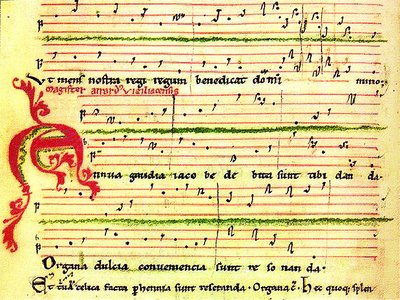 Ut mens nostra regi regum benedicat domi no
magister airardus viziliacensis
Annua gaudia iaco be de bita sunt tibi dan da
Organa dulcia conveniencia sunt re so nan da
Et tua celica facta phennia sunt Organa hec quoq; splen